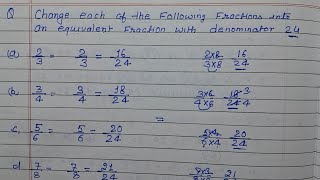 Q Change each of the Following Fractions into
an equivalent Fraction with denominator 24
(a) 2/3 = 2/3 = 16/24 2×8/3×8 16/24
(b) 3/4 = 3/4 = 18/24 3×6/4×6 18/24
=
c, 5/6 = 5/6 = 20/24 5×4/6×4 20/24
d 7/8 = 7/8 = 21/24 21